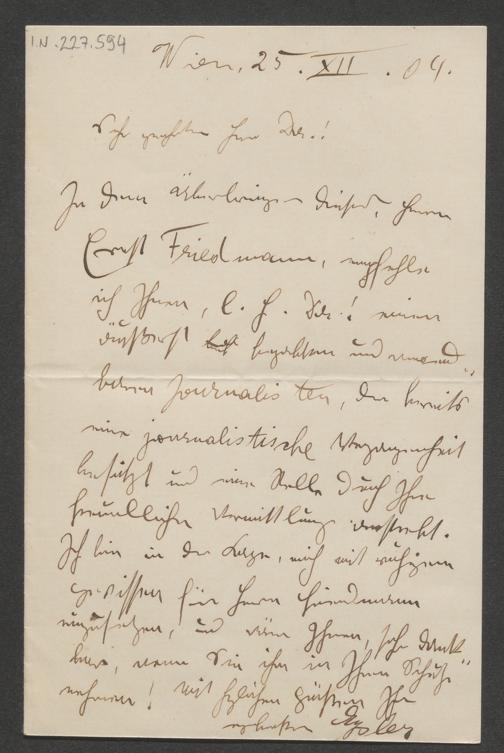 I.N. 227.594
Wien, 25. XII. 04.
Sehr geehrter Herr Dr.!
In dem Überbringer dieses, Herrn
Ernst Friedmann, empfehle
ich Ihnen, l. H. Dr.! einen
äußerst begabten und verwend-
baren Journalisten, der bereits
eine journalistische Vergangenheit
besitzt und eine Stelle durch Ihre
freundliche Vermittlung anstrebt.
Ich bin in der Lage, mich mit ruhigem
Gewissen für Herrn Friedmann
einzusetzen, und wäre Ihnen sehr dank-
bar, wenn Sie ihn in Ihren Schutz
nehmen! Mit herzlichen Grüßen Ihr
ergebenster Eysler